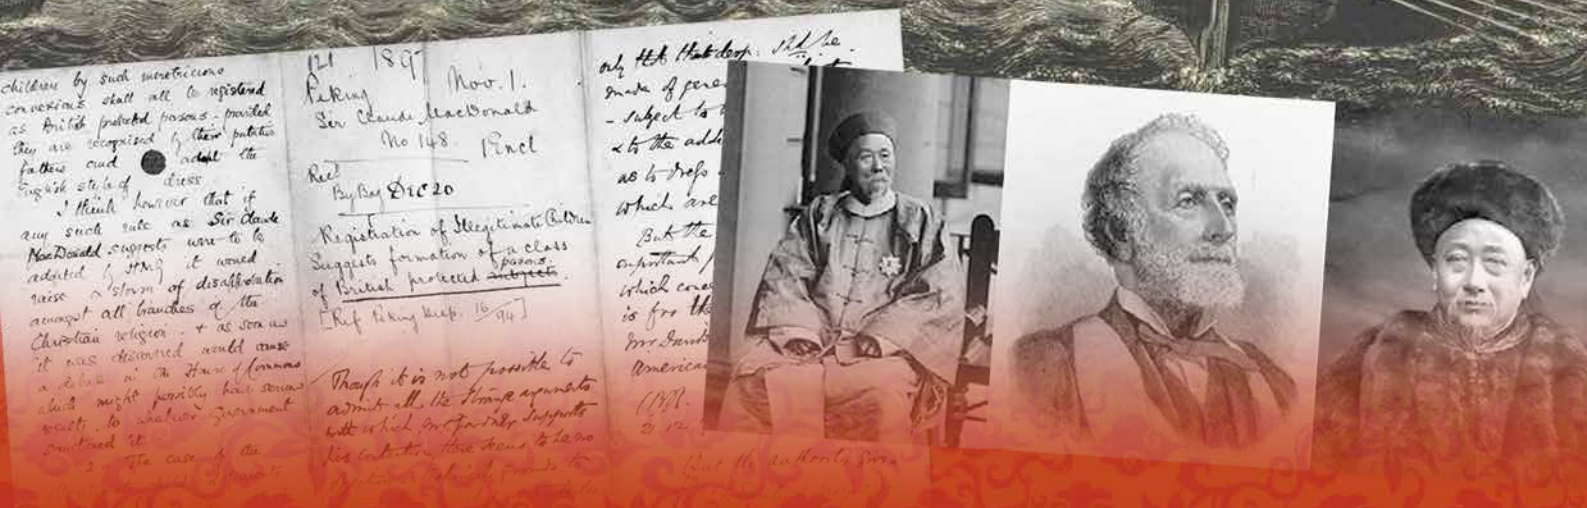 children by such meretricious
connexions shall all be registered
as British protected persons - provided
they are recognised by their putative
fathers and adopt the
English style of dress.
I think however that if
any such rule as Sir Claude
MacDonald suggests were to be
adopted by HMG it would
raise a storm of disapprobation
amongst all branches of the
Christian religion - & as soon as
it was discovered would cause
a debate in the House of Commons
which might possibly have serious
results to whatever Government
sanctioned it
2 - The case of the
121 189
Peking Nov. 1.
Sir Claude MacDonald
No 148. 1 Encl
Rec
By Bag DEC 20
Registration of Illegitimate Children
Suggests formation of a class
of British protected persons subjects.
[Ref Peking desp. 16/94]
Though it is not possible to
admit all the strange arguments
with which supports
his contention there seems to be no
grounds to
only that desp: shd be
made of gene
- subject to
& to the addi
as to dress
which are
But the
important
which conc
is fro the
Mr Davids
American
21.12.
that the authority given